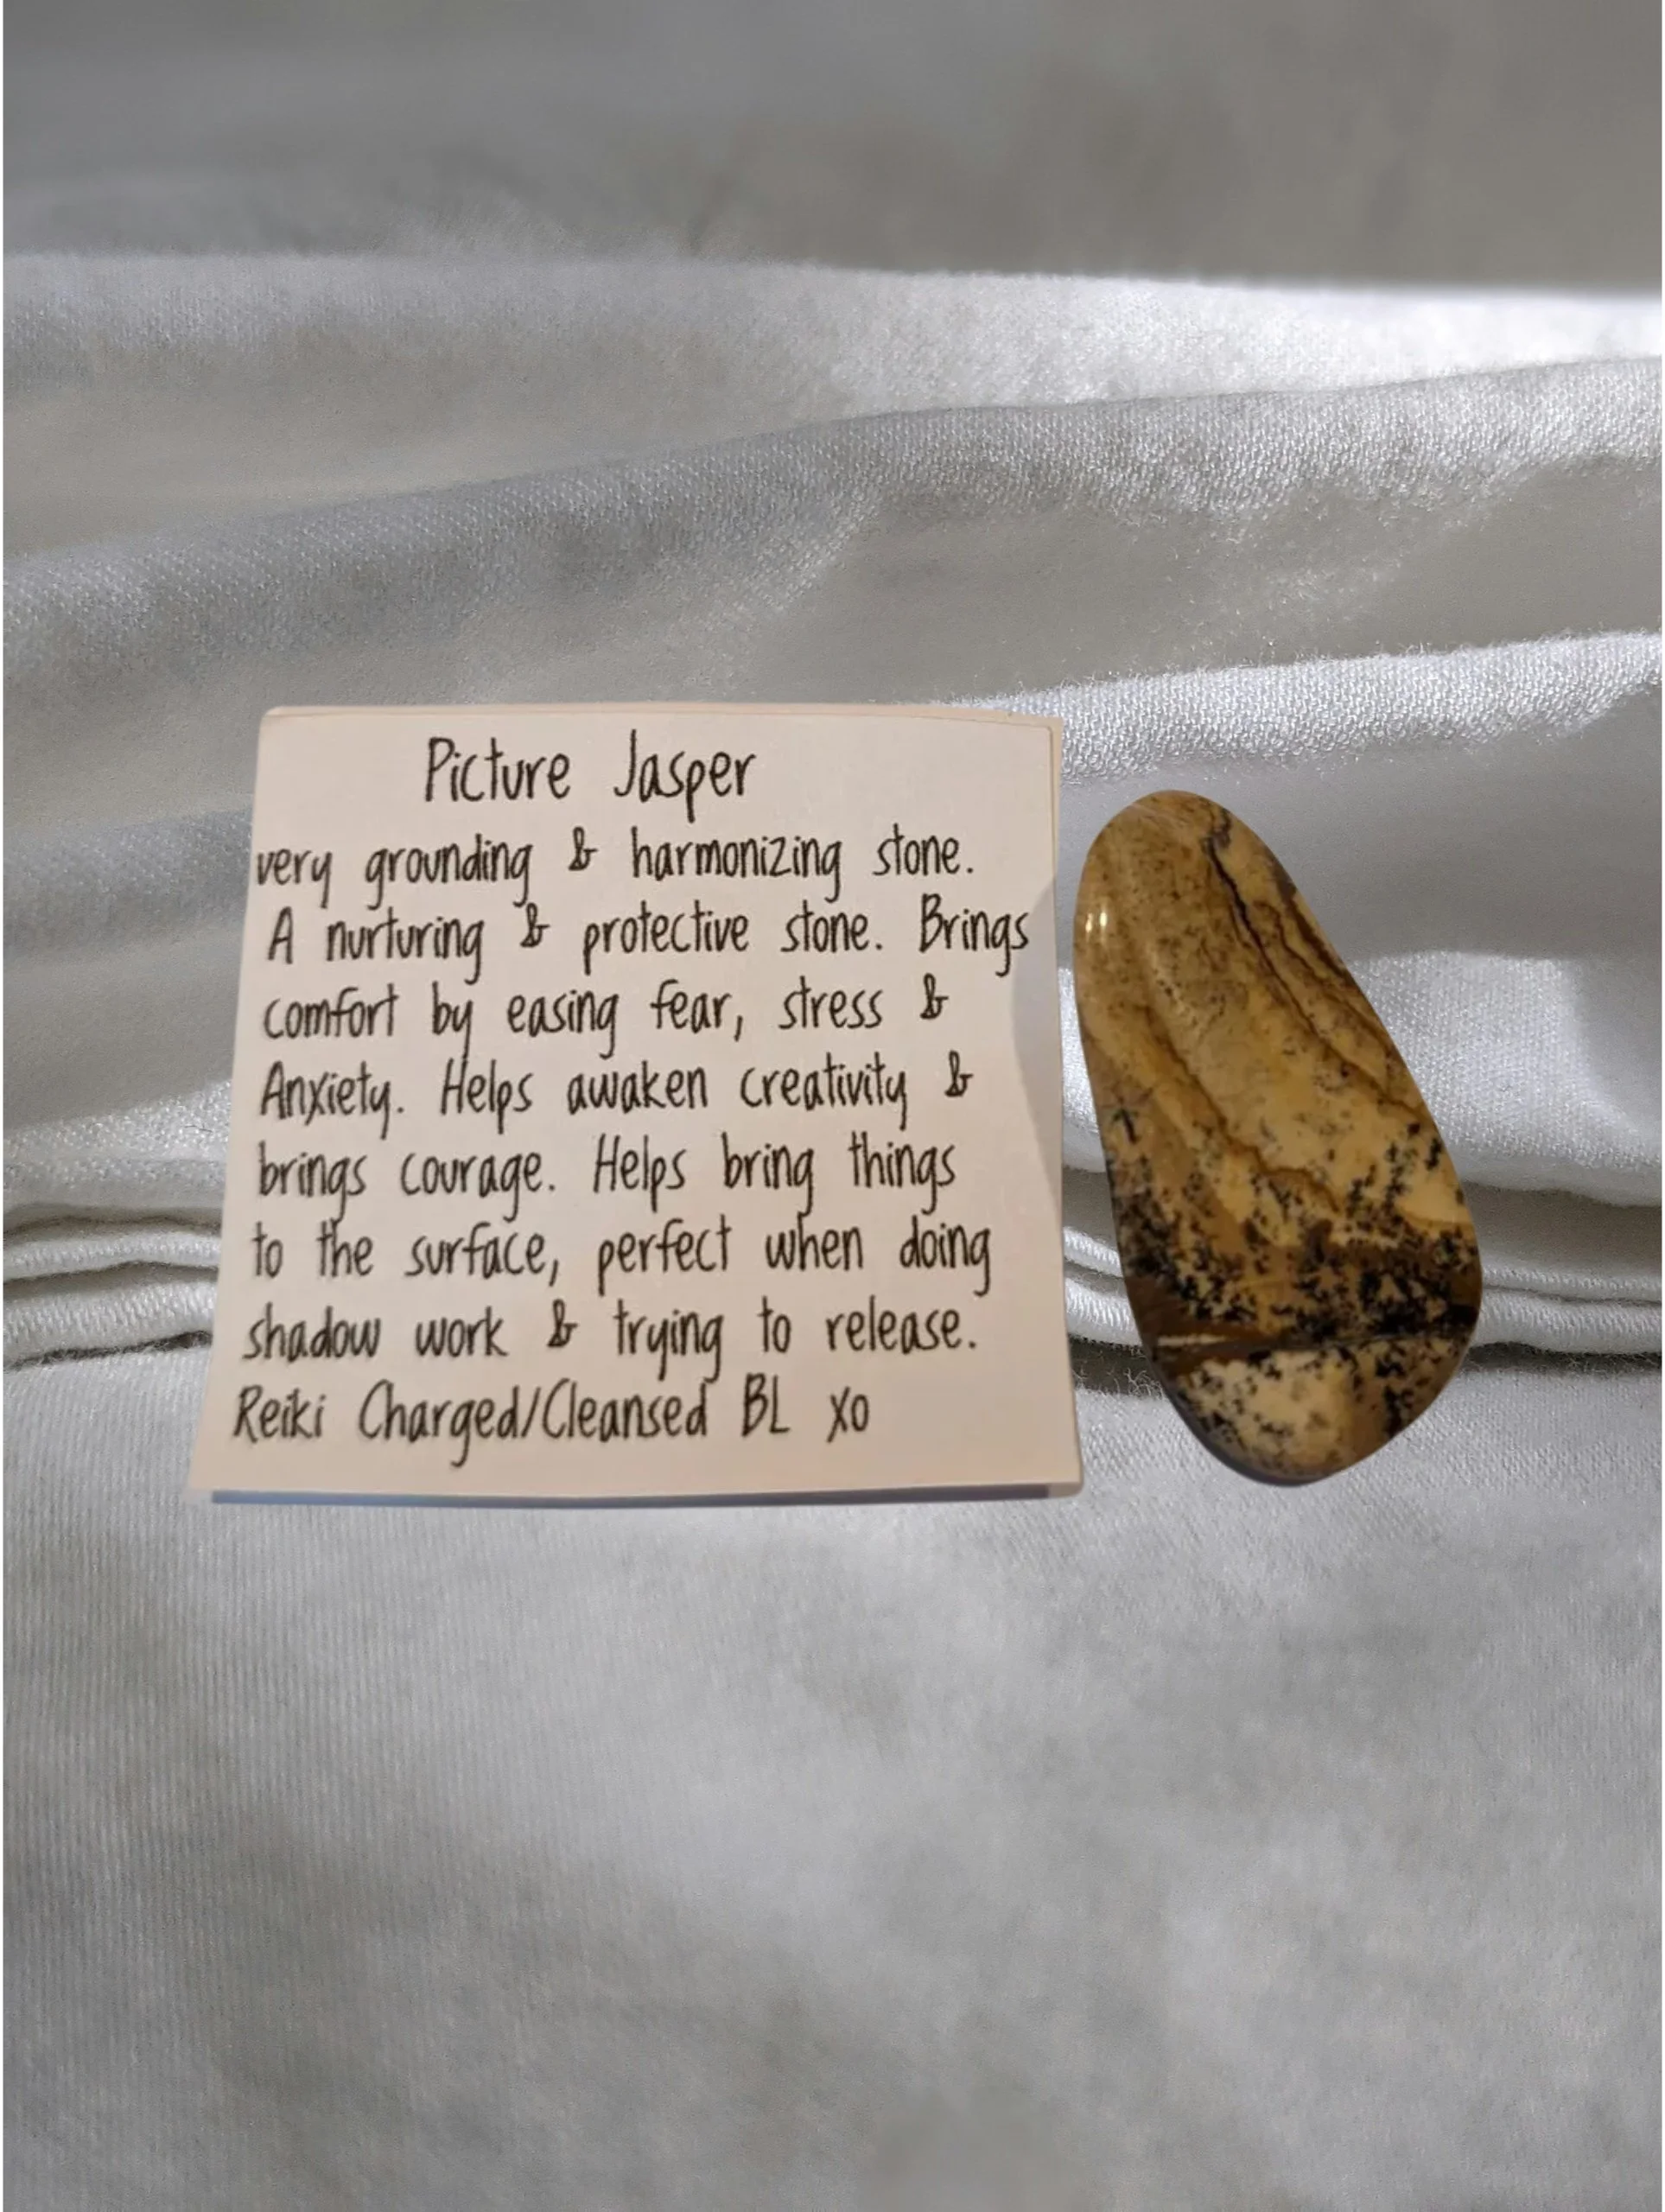 Picture Jasper
very grounding & harmonizing stone.
A nurturing & protective stone. Brings
comfort by easing fear, stress &
Anxiety. Helps awaken creativity &
brings courage. Helps bring things
to the surface, perfect when doing
shadow work & trying to release.
Reiki Charged/Cleansed BL xo